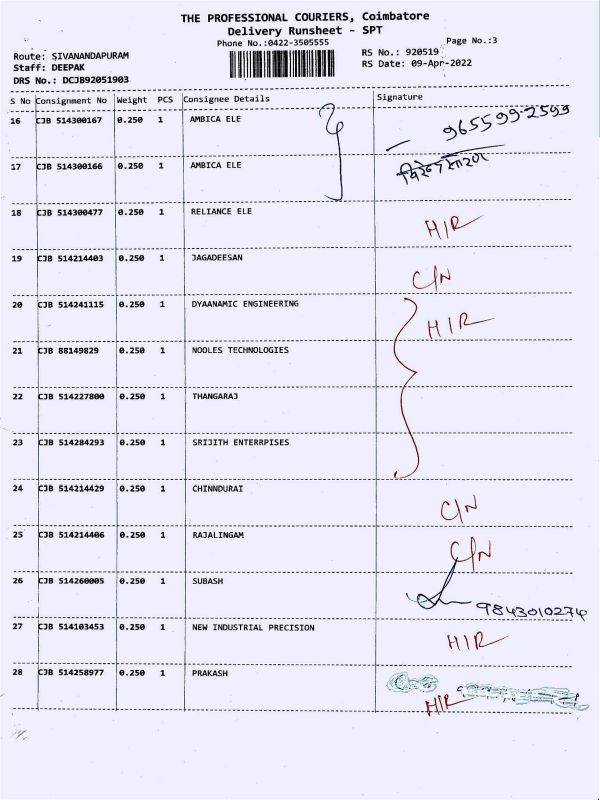 THE PROFESSIONAL COURIERS, Coimbatore
Delivery Runsheet - SPT
Phone No.:0422-3505555
Page No.:3
Route: SIVANANDAPURAM
RS No.: 920519
Staff: DEEPAK
RS Date: 09-Apr-2022
DRS No.: DCJB92051903
S No Consignment No Weight PCS Consignee Details Signature
16 CJB 514300167 0.250 1 AMBICA ELE 96559-92599
17 CJB 514300166 0.250 1 AMBICA ELE
18 CJB 514300477 0.250 1 RELIANCE ELE H/R
19 CJB 514214403 0.250 1 JAGADEESAN C/N
20 CJB 514241115 0.250 1 DYAANAMIC ENGINEERING H/R
21 CJB 88149829 0.250 1 NOOLES TECHNOLOGIES
22 CJB 514227800 0.250 1 THANGARAJ
23 CJB 514284293 0.250 1 SRIJITH ENTERRPISES
24 CJB 514214429 0.250 1 CHINNDURAI C/N
25 CJB 514214406 0.250 1 RAJALINGAM C/N
26 CJB 514260005 0.250 1 SUBASH 9843010274
27 CJB 514103453 0.250 1 NEW INDUSTRIAL PRECISION H/R
28 CJB 514258977 0.250 1 PRAKASH H/R